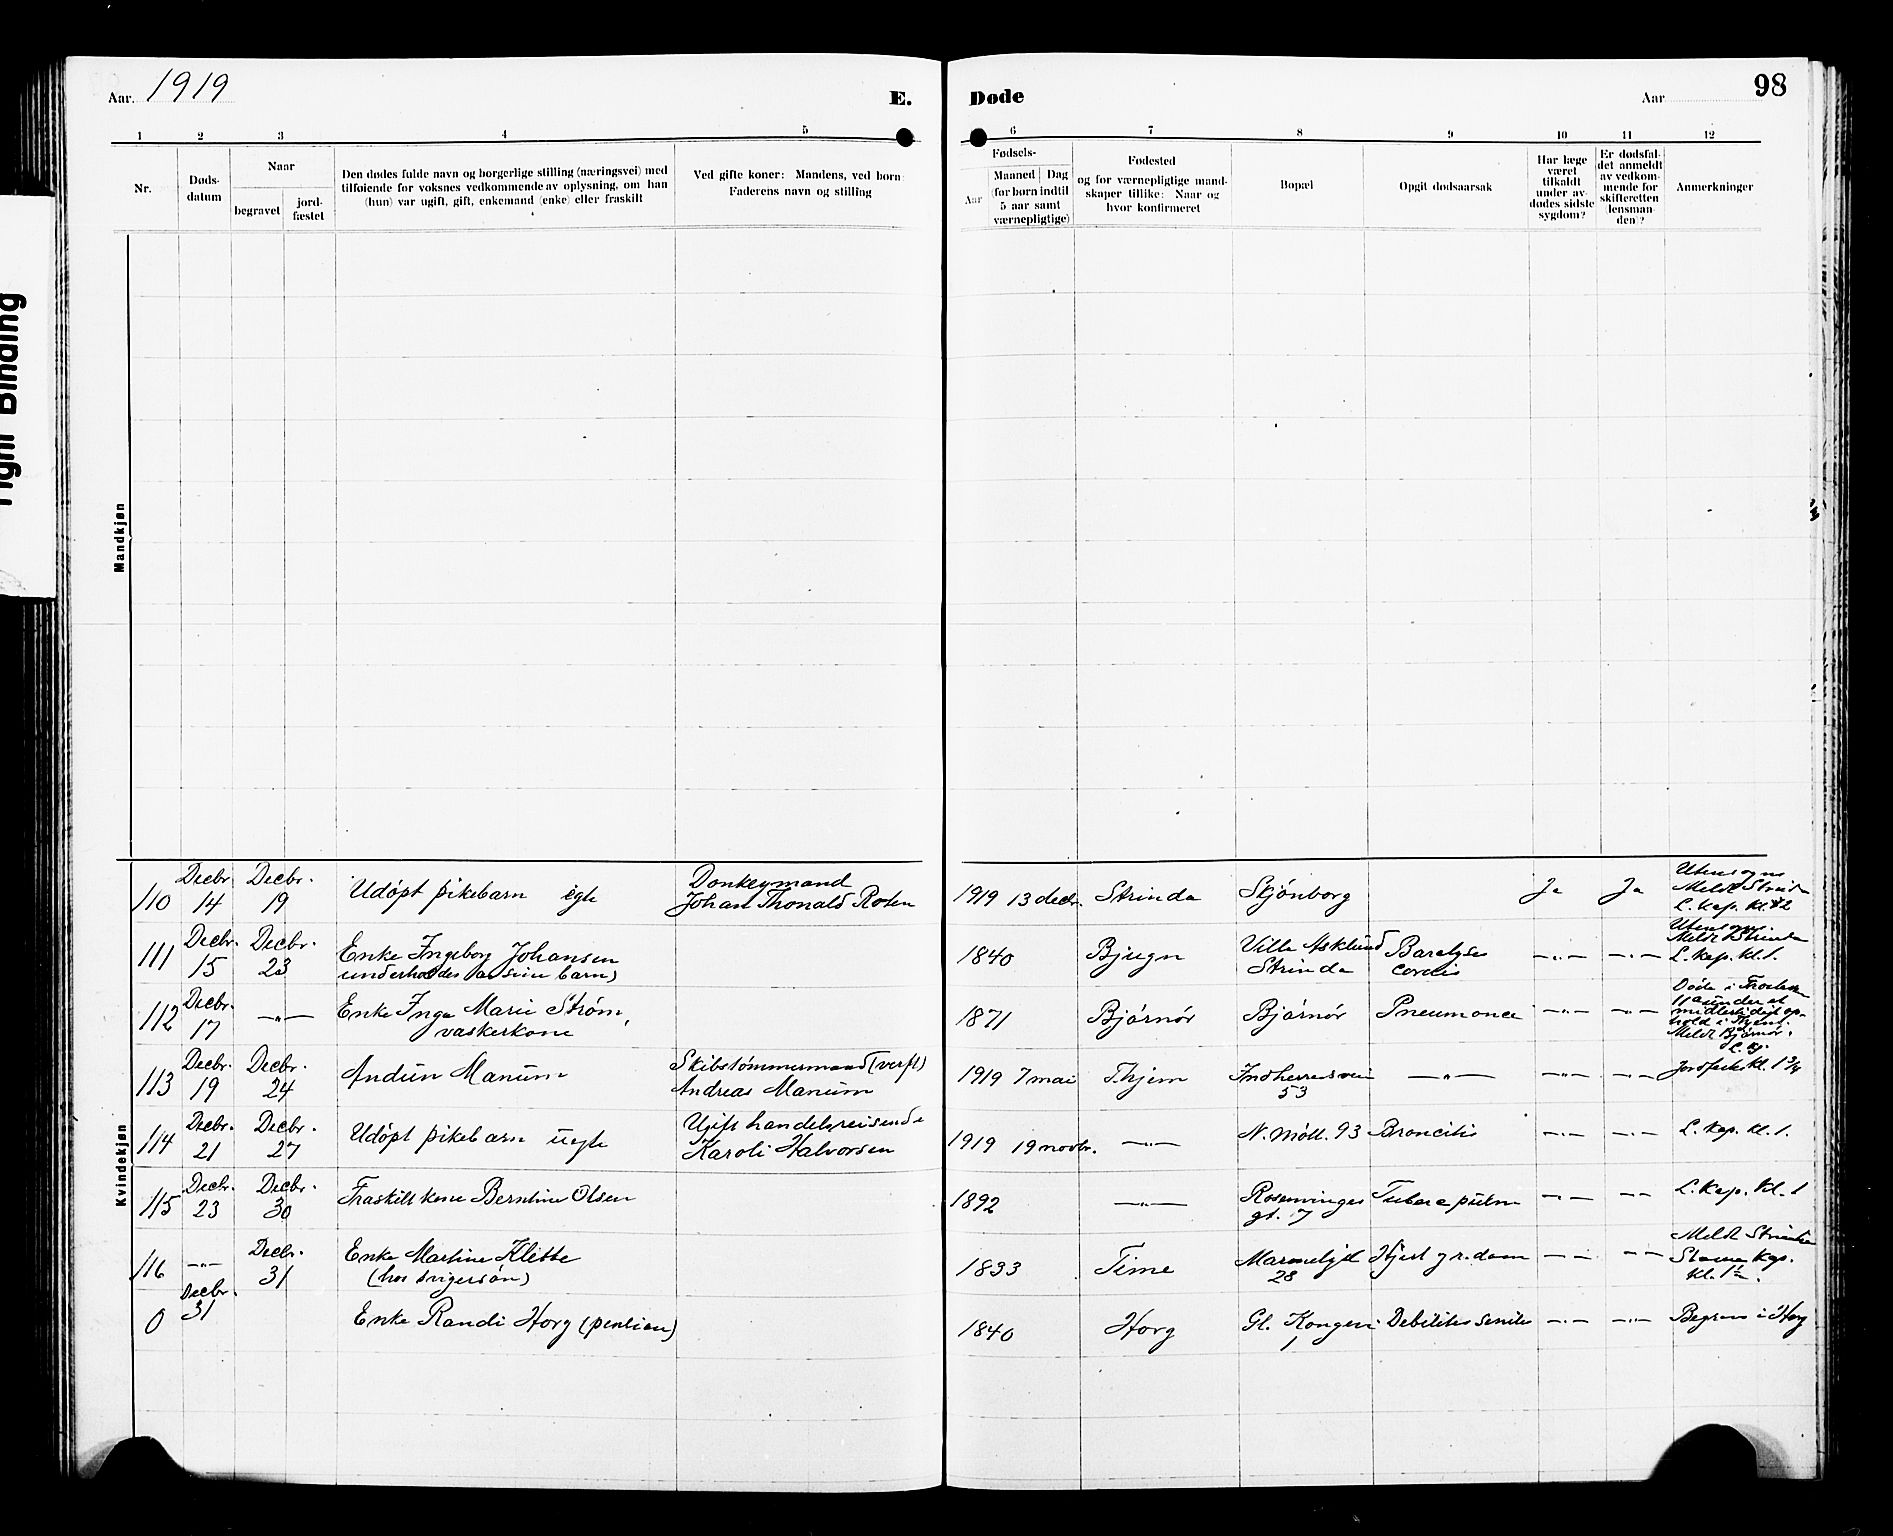 Aar. 1919
E.
Døde
Aar
98
1 2 3 4 5 6 7 8 9 10 11 12
Nr.
Døds-
datum
Naar
begravet
jord-
fæstet
Den dødes fulde navn og borgerlige stilling (næringsvei) med
tilføiende for voksnes vedkommende av oplysning, om han
(hun) var ugift, gift, enkemand (enke) eller fraskilt
Ved gifte koner: Mandens, ved børn:
Faderens navn og stilling
Fødsels-
Aar
Maaned Dag
(for børn indtil
5 aar samt
værnepligtige)
Fødested
og for værnepligtige mand-
skaper tillike: Naar og
hvor konfirmeret
Bopæl
Opgit dødsaarsak
Har læge
været
tilkaldt
under av-
dødes sidste
sygdom?
Er dødsfal-
det anmeldt
av vedkom-
mende for
skifteretten
(lensman-
den)?
Anmerkninger
Tight Binding
Mandkjøn
Kvindekjøn
110
Decbr.
14
Decbr.
19
Udöpt pikebarn egte
Donkeymand
Johan Thonald Roten
1919 13 decbr.
Strinda
Skjönborg
Ja
Ja
Utensogns
Meldt Strinda
L. Kap. Kl. 2
111
Decbr.
15
Decbr.
23
Enke Ingeborg Johansen
underholdes av sine barn)
1840
Bjugn
Villa Asklund
Strinda
Paralyse
cordis
—"—
—"—
Utensogns
Meldt Strinda
L. Kap. Kl. 1.
112
Decbr.
17
—"—
Enke Inga Marie Ström,
vaskerkone
1871
Björnör
Björnör
Pneumonie
—"—
—"—
under et
midlertidigt op-
hold i Thjem.
Meldt Björnör.
113
Decbr.
19
Decbr.
24
Andun Manum
Skibstömmermand (verft)
Andreas Manum
1919 7 mai
Thjem
Indherredsvei
53
—"—
—"—
—"—
Kl. 1 3/4
114
Decbr.
21
Decbr.
27
Udöpt pikebarn uegte
Ugift handelsreisende
Karoli Halvorsen
1919 19 novbr.
—"—
N. Möll. 93
Broncitis
—"—
—"—
L. Kap. Kl. 1.
115
Decbr.
23
Decbr.
30
Fraskilt kone Berntine Olsen
1892
—"—
Rosenvinges
gt. 7
Tuberc pulm
—"—
—"—
L. Kap. Kl. 1
116
—"—
Decbr.
31
Enke Martine Klette
(hos svigersön)
1833
Time
28
—"—
—"—
Meldt Strinda
Kap.
Kl. 1 1/2.
0
Decbr.
31
Enke Randi Horg (pension)
1840
Horg
Gl. Kongevei
1
Debilitas senilis
—"—
—"—
Begrav. i Horg